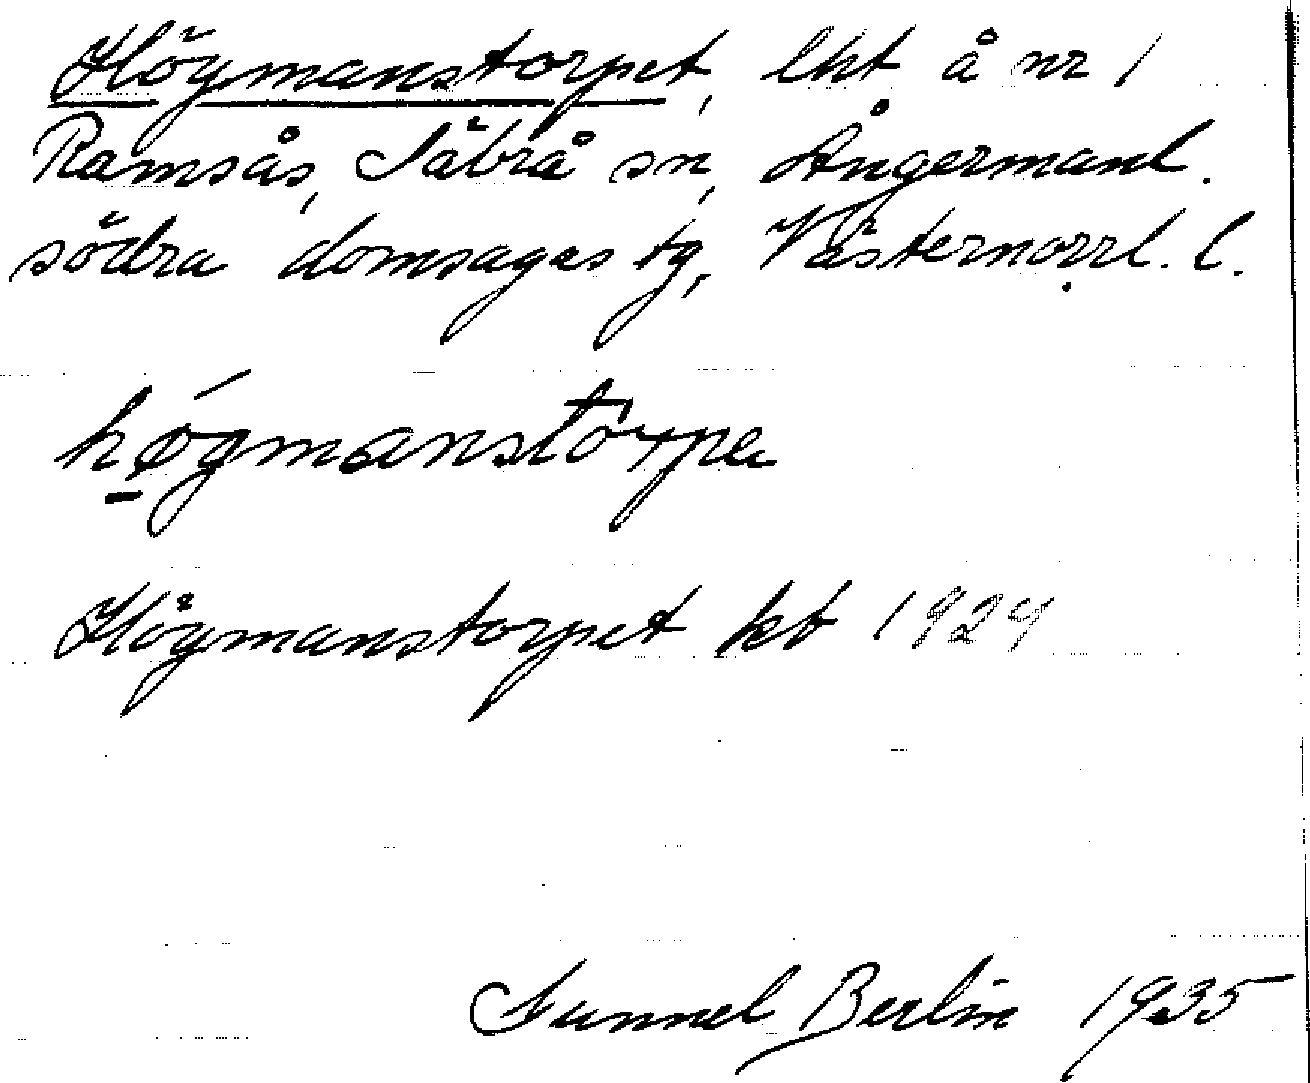 Högmanstorpet, lht å nr 1
Ramsås, Säbrå sn, Ångermanl.
södra domsagas tg, Västernorrl. l.
hǿ̱gmanstòrpe
Högmanstorpet kb 1924
Gunnel Berlin 1935